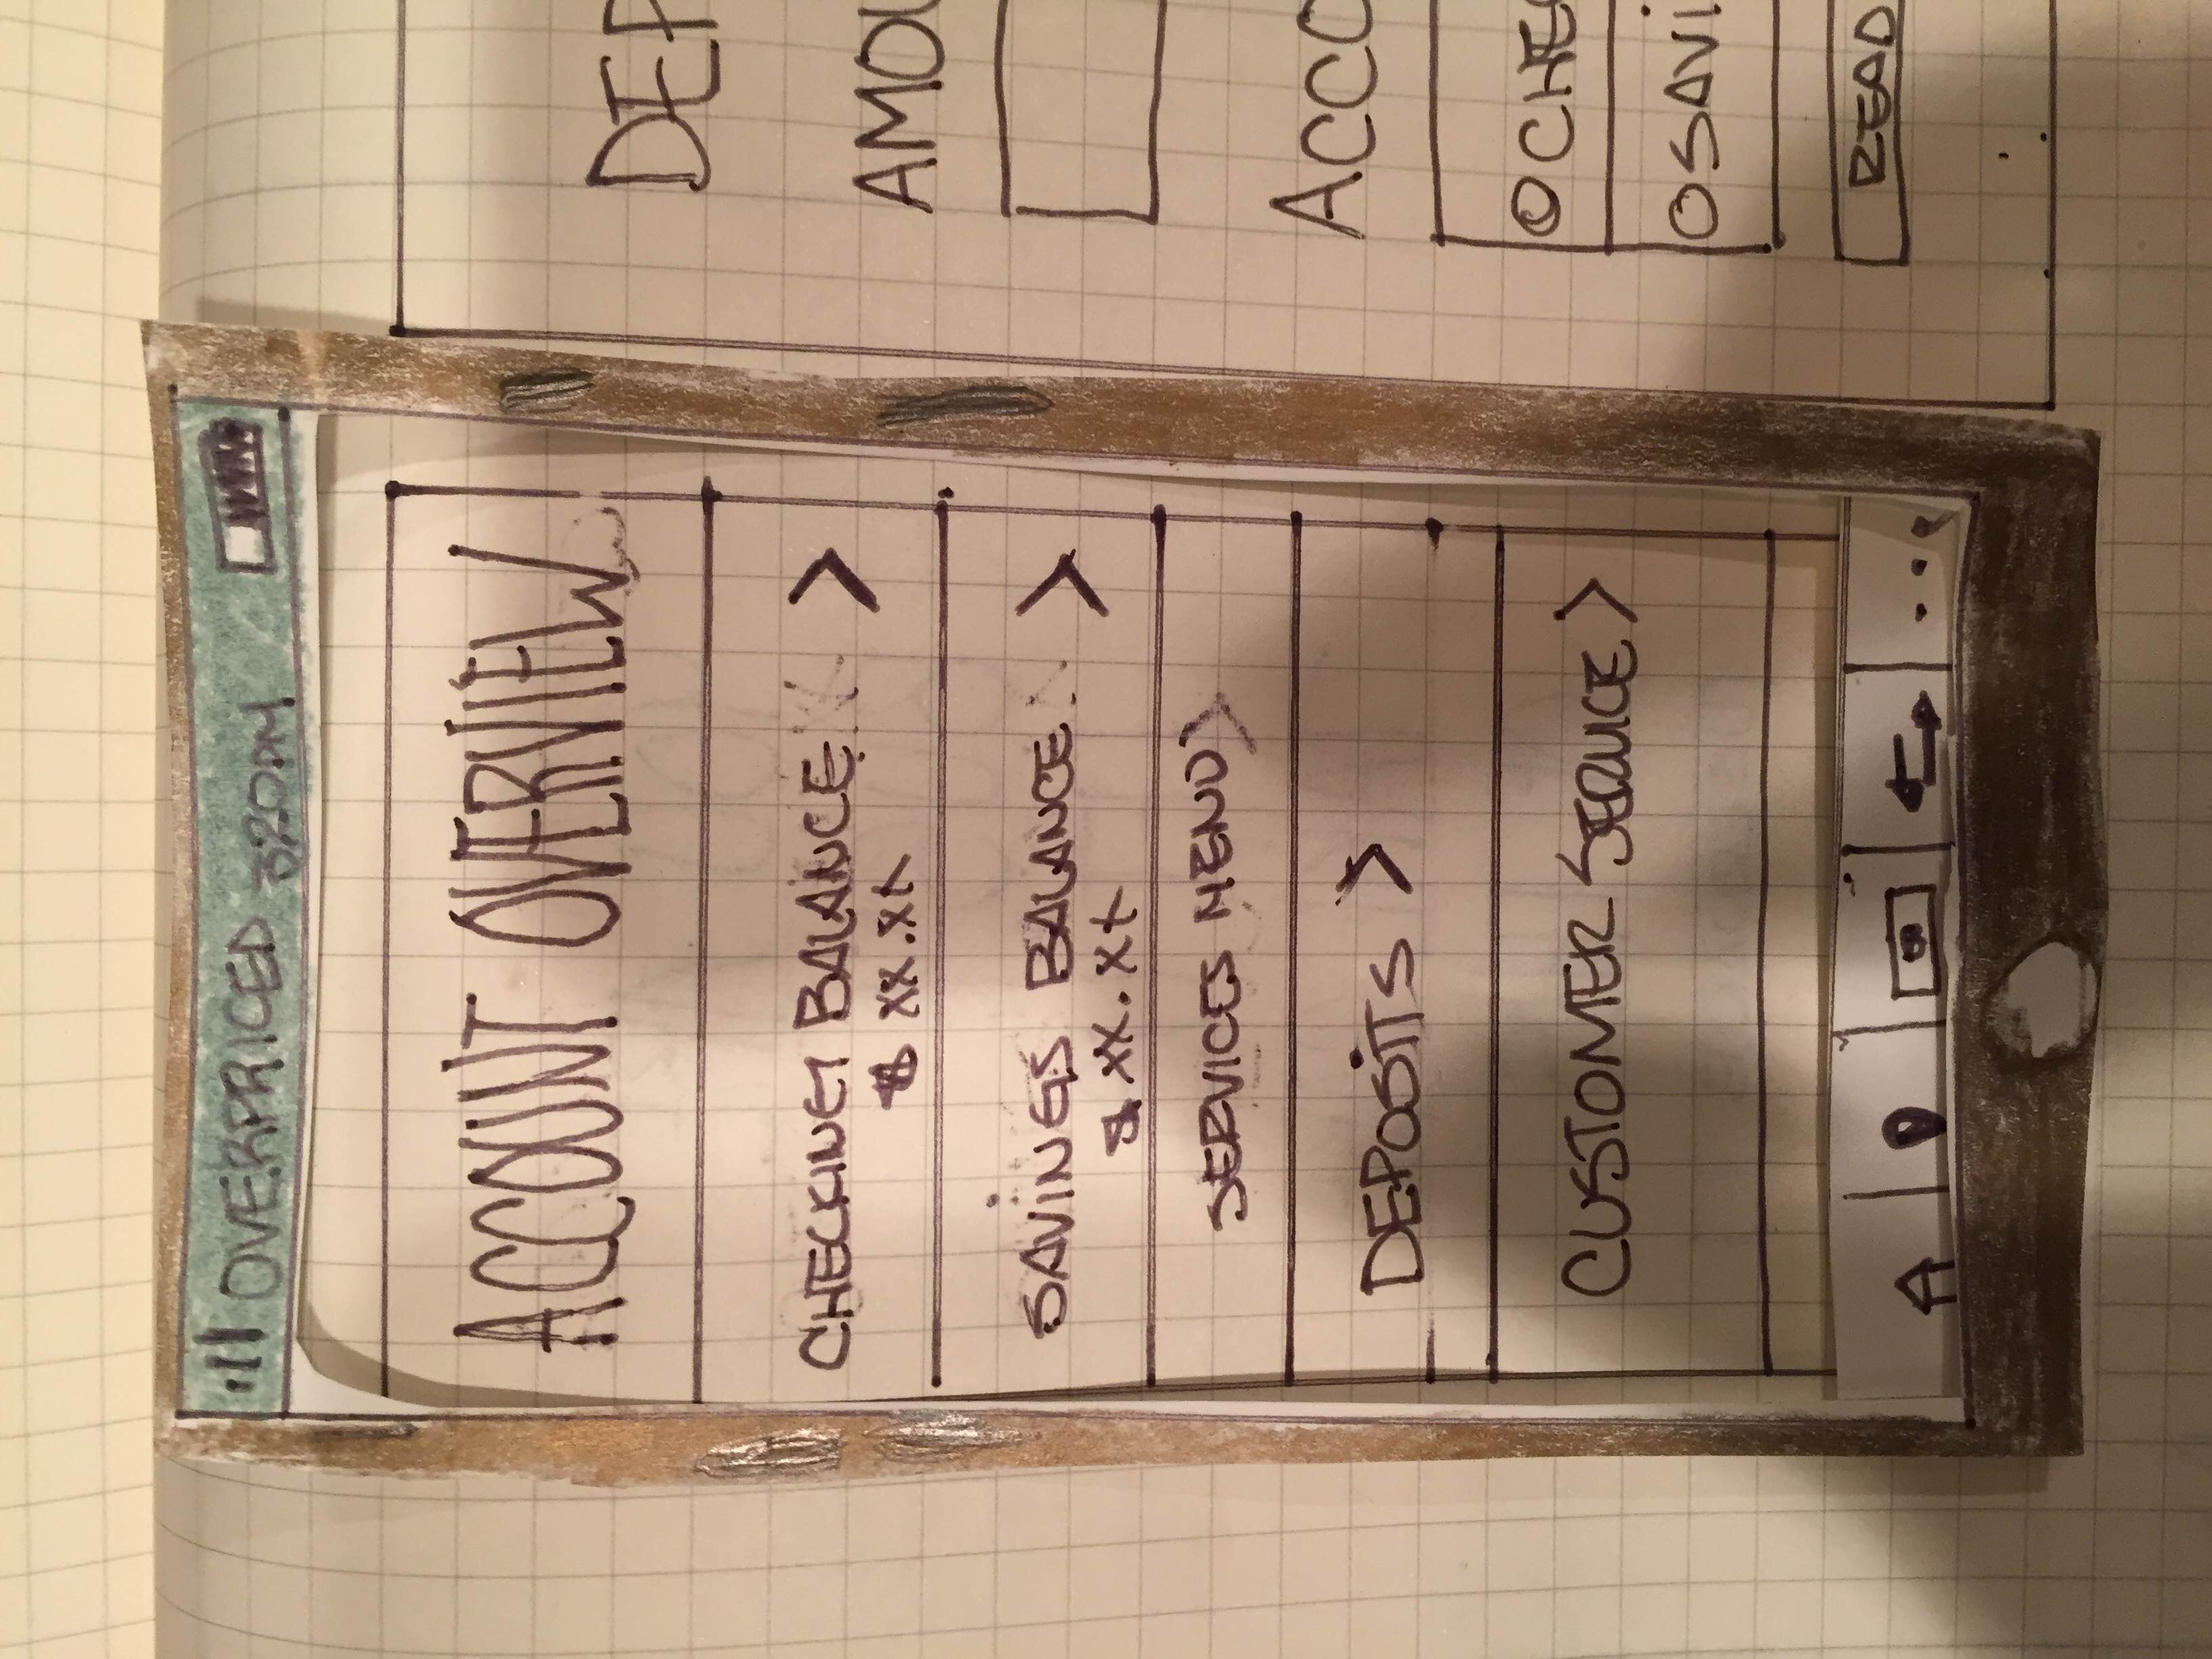 OVERPRICED 320PM
ACCOUNT OVERVIEW
CHECKING BALANCE >
$ XX.XX
SAVINGS BALANCE >
$ XX.XX
SERVICES MENU >
DEPOSITS >
CUSTOMER SERVICE >
DEP
AMOU
ACCO
CHEC
SAVI
READ